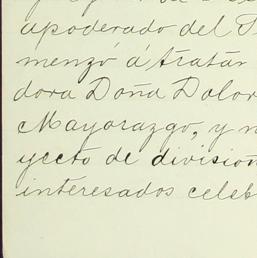 apoderado del
menzó á tratar
dora Doña Dolor
Mayorazgo, y n
yecto de division
interesados celeb